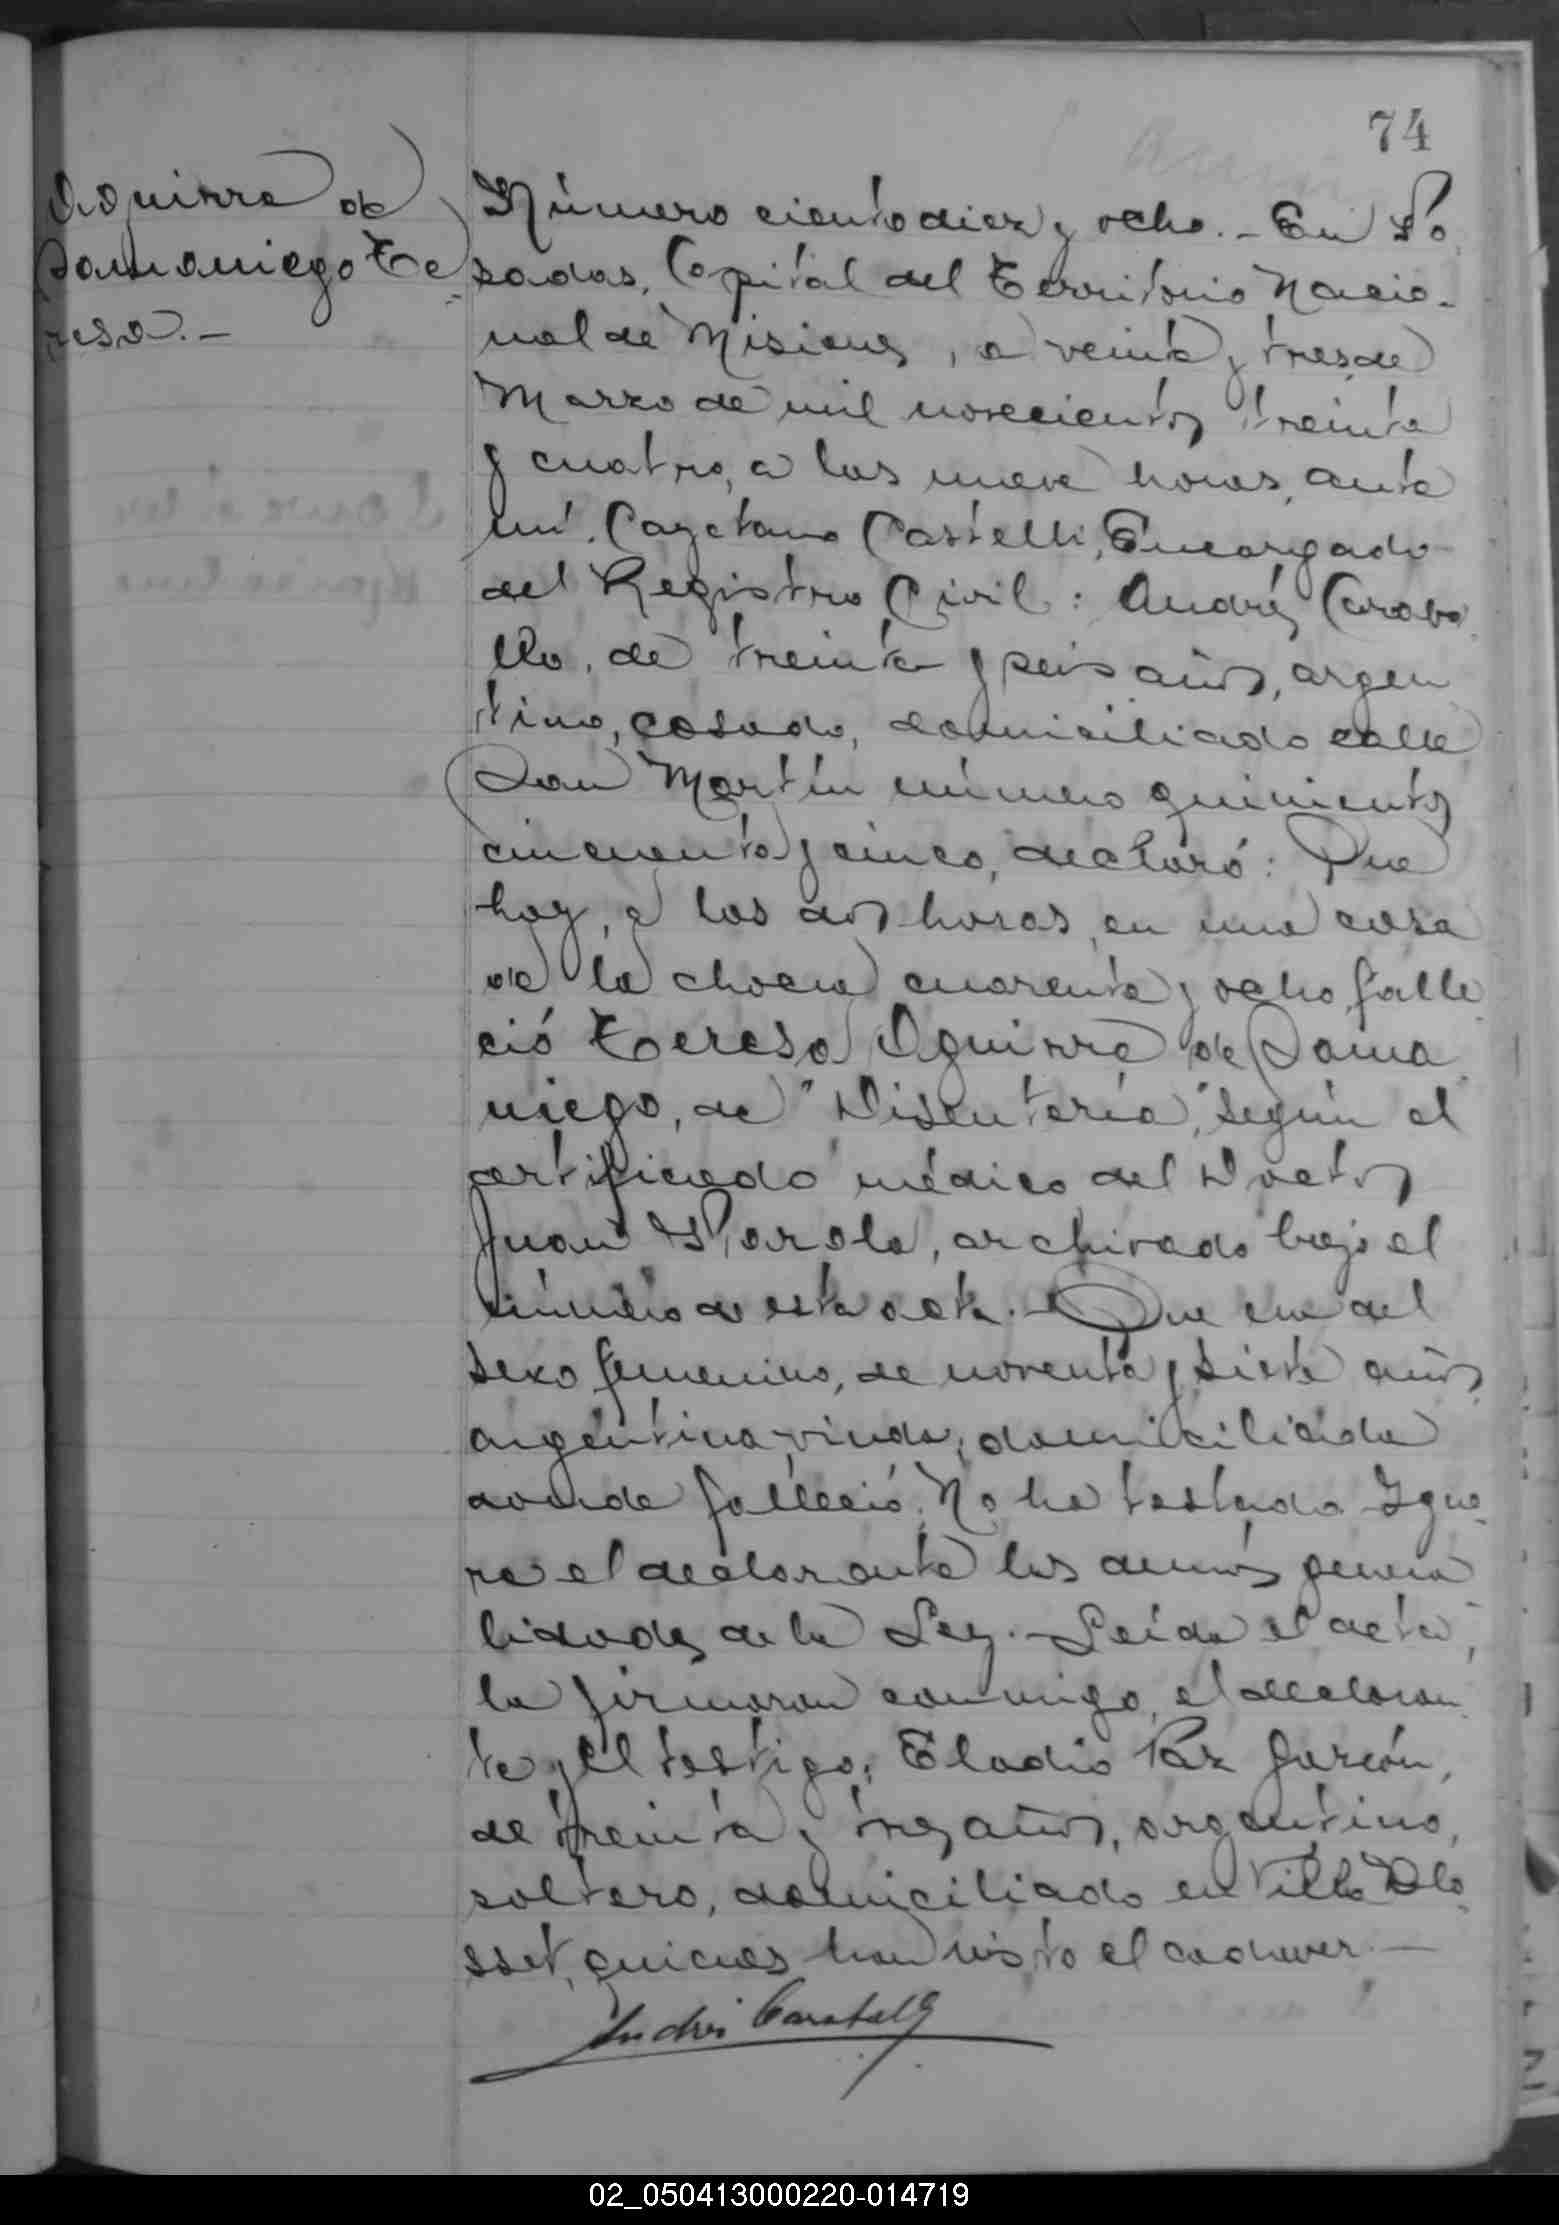 74
Aguirre de
Samaniego Te
resa.-
Número ciento diez y ocho.- En Po
sadas, Capital del Territorio Nacio-
nal de Misiones, a veinte y tres de
Marzo de mil novecientos treinta
y cuatro, a las nueve horas, ante
mí, Cayetano Castelli, Encargado
del Registro Civil: Andrés Caraba
llo, de treinta y seis años, argen
tino, casado, domiciliado calle
San Martín número quinientos
cincuenta y cinco, declaró: Que
hoy, a las dos horas, en una casa
de la chacra cuarenta y ocho falle
ció Teresa Aguirre de Sama
niego, de "Disentería", según el
certificado médico del Doctor
Juan Parola, archivado bajo el
número de esta acta.- Que era del
sexo femenino, de noventa y siete años
argentina, viuda, domiciliada
donde falleció. No ha testado. Igno
ra el declarante las demás genera
lidades de la Ley.- Leída el acta,
la firmaron conmigo, el declaran
te y el testigo: Eladio Paz Garzón,
de treinta y tres años, argentino,
soltero, domiciliado en Villa Blo
sset, quienes han visto el cadaver.-
Andrés Caraballo
02_050413000220-014719